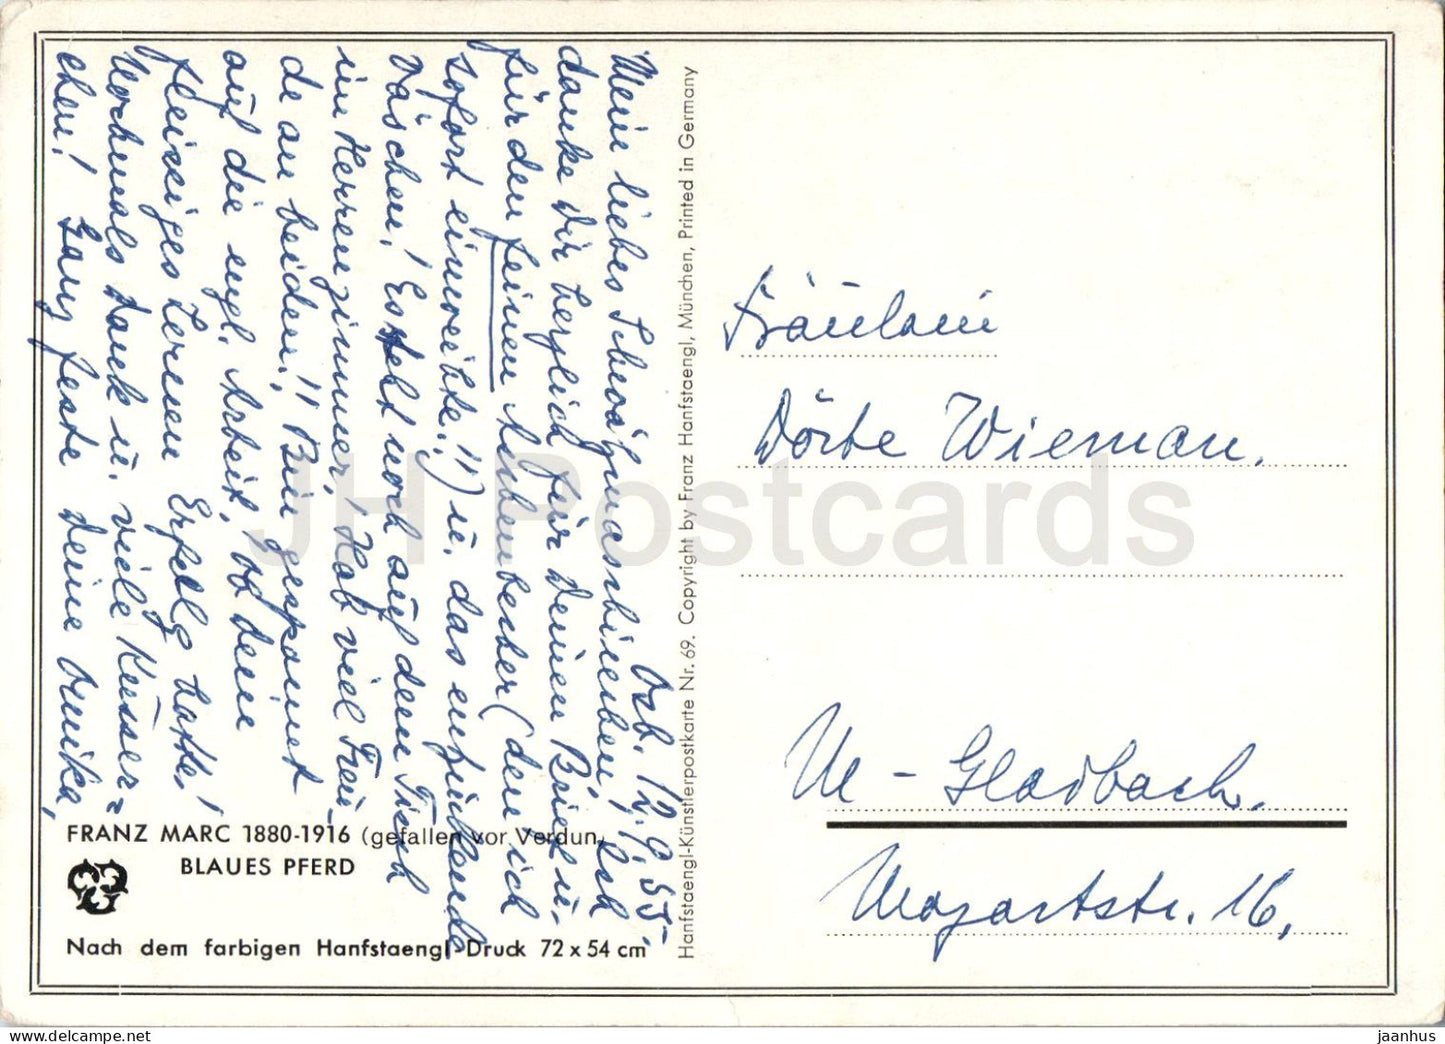 Osb. 12.9.55.
Mein liebes Schwälmasbienchen! Ich
danke Dir herzlich für Deinen Brief u.
für den feinen Aschenbecher (den ich
sofort einweihte!!) u. das
Väschen! Es steht noch auf dem Tisch
im Herrenzimmer! Hab viel Freu-
de an beiden!! Bin gespannt
auf die engl. Arbeit, ob dein
fleissiges Lernen Erfolg hatte!
Nochmals Dank u. viele Küsser=
chen! Ganz feste Deine Annika,
FRANZ MARC 1880-1916 (gefallen vor Verdun)
BLAUES PFERD
Nach dem farbigen Hanfstaengl-Druck 72 x 54 cm
Hanfstaengl-Künstlerpostkarte Nr. 69. Copyright by Franz Hanfstaengl, München, Printed in Germany
Fräulein
Dörte Wieman.
M-Gladbach.
Mozartstr. 16,
JH Postcards
jaanhus @ delcampe.net